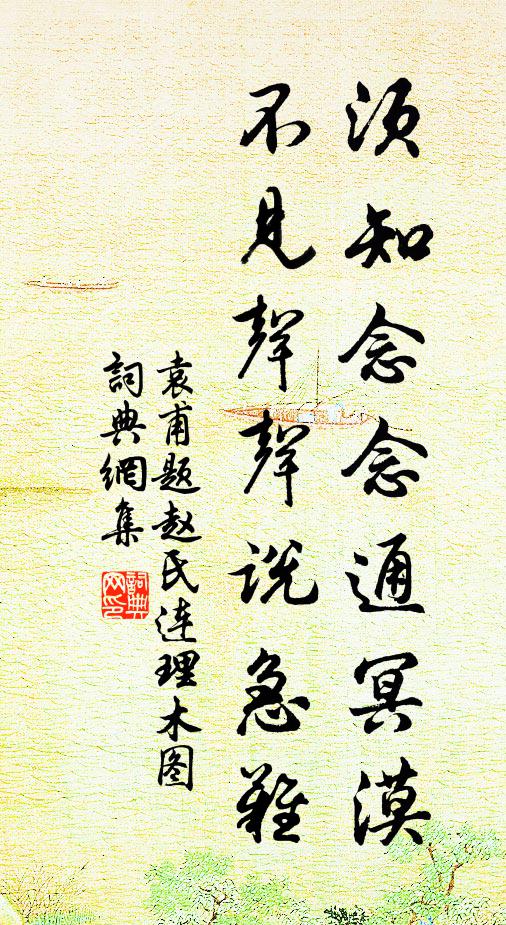 须知念念通冥漠
不见聲聲说急難
袁甫题赵氏连理木图
詞典網集
詞典网印